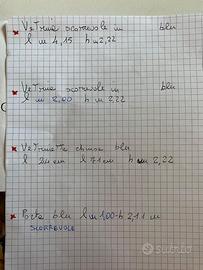 Vetrina scorrevole in blu
l m 4,15 h m 2,22
Vetrina scorrevole in blu
l m 2,00 h m 2,22
Vetrinetta chiusa blu
l 24 cm l 71 cm h m 2,22
Porta blu l m 1,00 - h 2,11 m
SCORREVOLE
Subito